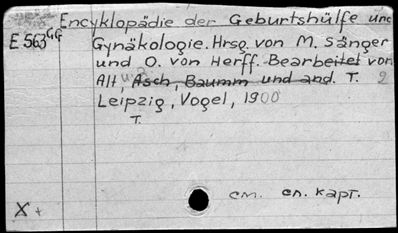 Encyklopädie der Geburtshülfe und
E 563 GG Gynäkologie. Hrsg. von M. Sänger
und O. von Herff. Bearbeitet von
Alt, Asch, Baumm und and. T. 2
Leipzig, Vogel, 1900
T.
см. сл. карт.
X +